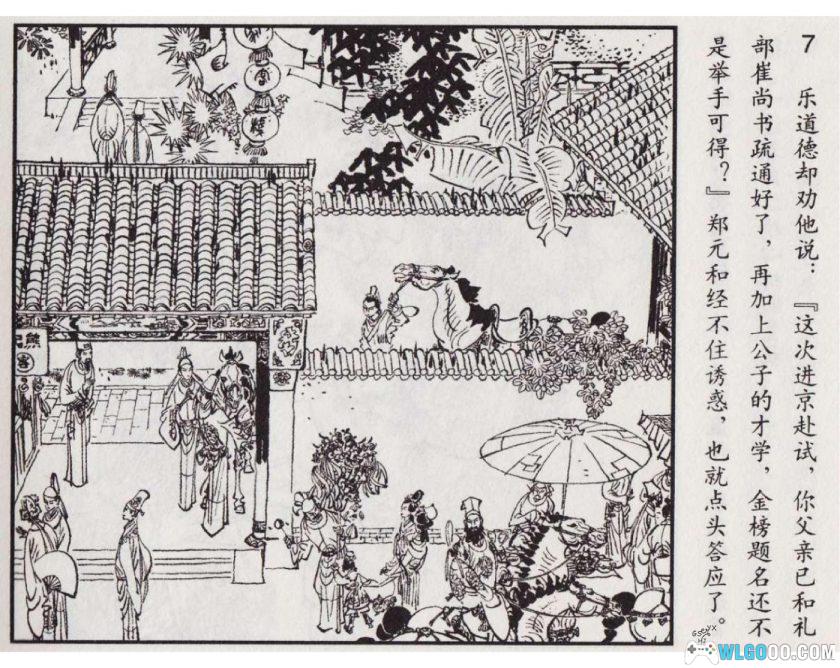 7 乐道德却劝他说：『这次进京赴试，你父亲已和礼
部崔尚书疏通好了，再加上公子的才学，金榜题名还不
是举手可得？』郑元和经不住诱惑，也就点头答应了。
熊
WLGOOO.COM